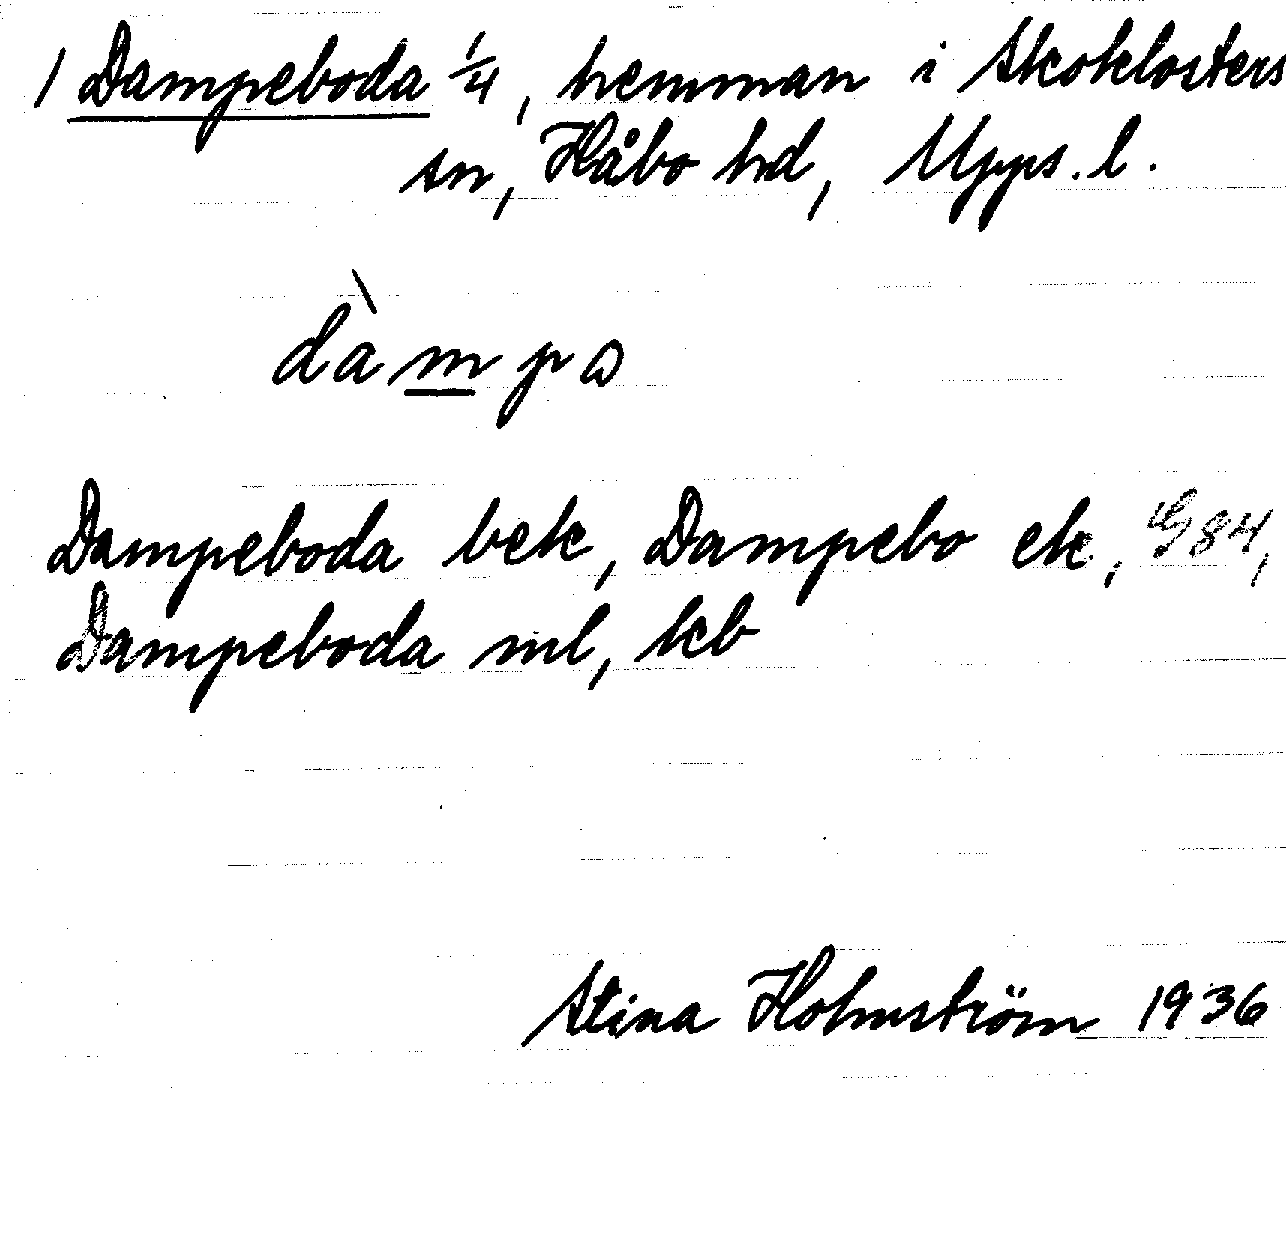 1 Dampeboda 1/4, hemman i Skoklosters
sn, Håbo hd, Upps. l.
dàmpa
Dampeboda bek, Dampebo ek, G 84,
Dampeboda ml, kb
Stina Holmström 1936